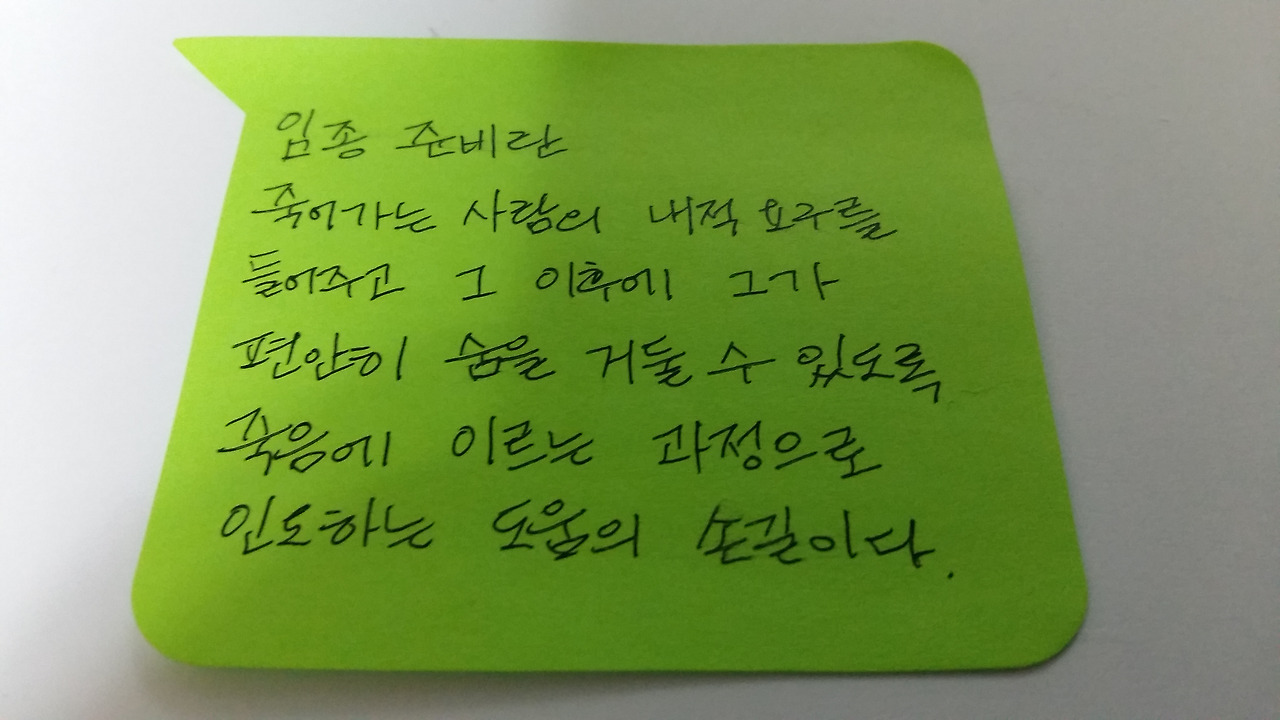 임종 준비란
죽어가는 사람의 내적 요구를
들어주고 그 이후에 그가
편안히 숨을 거둘 수 있도록
죽음에 이르는 과정으로
인도하는 도움의 손길이다.